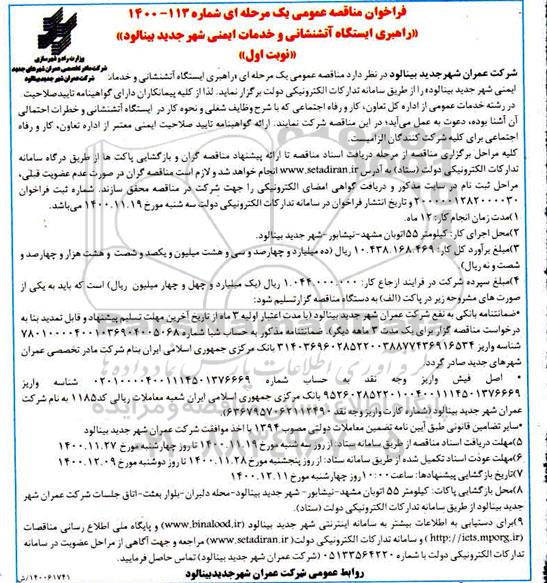 فراخوان مناقصه عمومی یک مرحله ای شماره ۱۱۳-۱۴۰۰
«راهبری ایستگاه آتشنشانی و خدمات ایمنی شهر جدید بینالود»
«نوبت اول»
وزارت راه و شهرسازی
شرکت عمران شهر جدید بینالود
شرکت عمران شهر جدید بینالود در نظر دارد مناقصه عمومی یک مرحله ای «راهبری ایستگاه آتشنشانی و خدمات
ایمنی شهر جدید بینالود» را از طریق سامانه تدارکات الکترونیکی دولت برگزار نماید. لذا از کلیه پیمانکاران دارای گواهینامه تایید صلاحیت
در رشته خدمات عمومی از اداره کل تعاون، کار و رفاه اجتماعی که با شرح وظایف شغلی و نحوه کار در ایستگاه آتشنشانی و خطرات احتمالی
آن آشنا بوده، دعوت به عمل می‌آید؛ در این مناقصه شرکت نمایند. ارائه گواهینامه تایید صلاحیت ایمنی معتبر از اداره تعاون، کار و رفاه
اجتماعی برای کلیه شرکت کنندگان الزامیست.
کلیه مراحل برگزاری مناقصه از مرحله دریافت اسناد مناقصه تا ارائه پیشنهاد مناقصه گران و بازگشایی پاکت ها از طریق درگاه سامانه
تدارکات الکترونیکی دولت (ستاد) به آدرس www.setadiran.ir انجام خواهد شد و لازم است مناقصه گران در صورت عدم عضویت قبلی،
مراحل ثبت نام در سایت مذکور و دریافت گواهی امضای الکترونیکی را جهت شرکت در مناقصه محقق سازند. شماره ثبت فراخوان
و تاریخ انتشار فراخوان در سامانه تدارکات الکترونیکی دولت سه شنبه مورخ ۱۴۰۰.۱۱.۱۹ می‌باشد.
۱)مدت زمان انجام کار: ۱۲ ماه.
۲)محل اجرای کار: کیلومتر ۵۵ اتوبان مشهد-نیشابور- شهر جدید بینالود.
۳)مبلغ برآورد کل کار: ۱۰.۴۳۸.۱۶۸.۴۶۹ ریال (ده میلیارد و چهارصد و سی و هشت میلیون و یکصد و شصت و هشت هزار و چهارصد و
شصت و نه ریال)
۴)مبلغ سپرده شرکت در فرایند ارجاع کار: ۱.۰۴۴.۰۰۰.۰۰۰ ریال (یک میلیارد و چهل و چهار میلیون ریال) است که باید به یکی از
صورت های مشروحه زیر در پاکت (الف) به دستگاه مناقصه گزار تسلیم شود:
*ضمانتنامه بانکی به نفع شرکت عمران شهر جدید بینالود (با مدت اعتبار اولیه ۳ ماه از تاریخ آخرین مهلت تسلیم پیشنهاد و قابل تمدید بنا به
درخواست مناقصه گزار برای یک مدت ۳ ماهه دیگر). ضمانتنامه مذکور به حساب شبا شماره
شناسه واریز بانک مرکزی جمهوری اسلامی ایران بنام شرکت مادر تخصصی عمران
شهرهای جدید صادر گردد.
* اصل فیش واریز وجه نقد به حساب شماره شناسه واریز
بانک مرکزی جمهوری اسلامی ایران شعبه معاملات ریالی کد ۱۱۸۵ به نام شرکت
عمران شهر جدید بینالود (شماره کارت واریز وجه نقد
*سایر تضامین قانونی طبق آیین نامه تضمین معاملات دولتی مصوب ۱۳۹۴ با اخذ موافقت شرکت عمران شهر جدید بینالود
۵)مهلت دریافت اسناد مناقصه از طریق سامانه ستاد: از روز سه شنبه مورخ ۱۴۰۰.۱۱.۱۹ تا روز چهارشنبه مورخ ۱۴۰۰.۱۱.۲۷
۶)مهلت عودت اسناد تکمیل شده از طریق سامانه ستاد: از روز پنجشنبه مورخ ۱۴۰۰.۱۱.۲۸ تا روز دوشنبه مورخ ۱۴۰۰.۱۲.۰۹
۷)تاریخ بازگشایی پیشنهادها: ساعت ۱۰:۰۰ روز چهارشنبه مورخ ۱۴۰۰.۱۲.۱۱
۸)محل بازگشایی پاکات: کیلومتر ۵۵ اتوبان مشهد-نیشابور- شهر جدید بینالود-محله دلبران-بلوار بعثت-اتاق جلسات شرکت عمران شهر
جدید بینالود (از طریق سامانه تدارکات الکترونیکی دولت (ستاد).
۹)برای دستیابی به اطلاعات بیشتر به سامانه اینترنتی شهر جدید بینالود (www.binalood.ir) و پایگاه ملی اطلاع رسانی مناقصات
(http://iets.mporg.ir) و سامانه تدارکات الکترونیکی دولت (www.setadiran.ir) مراجعه و جهت آگاهی از مراحل عضویت در سامانه
تدارکات الکترونیکی دولت با شماره ۰۵۱۳۳۵۶۴۲۲۰ (شرکت عمران شهر جدید بینالود) تماس حاصل فرمایید.
روابط عمومی شرکت عمران شهر جدید بینالود
۱۴۰۰۶۱۷۴۱/ش